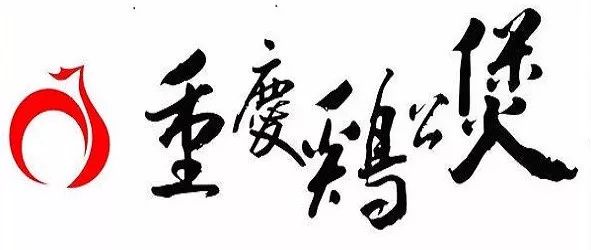 重慶鷄公煲